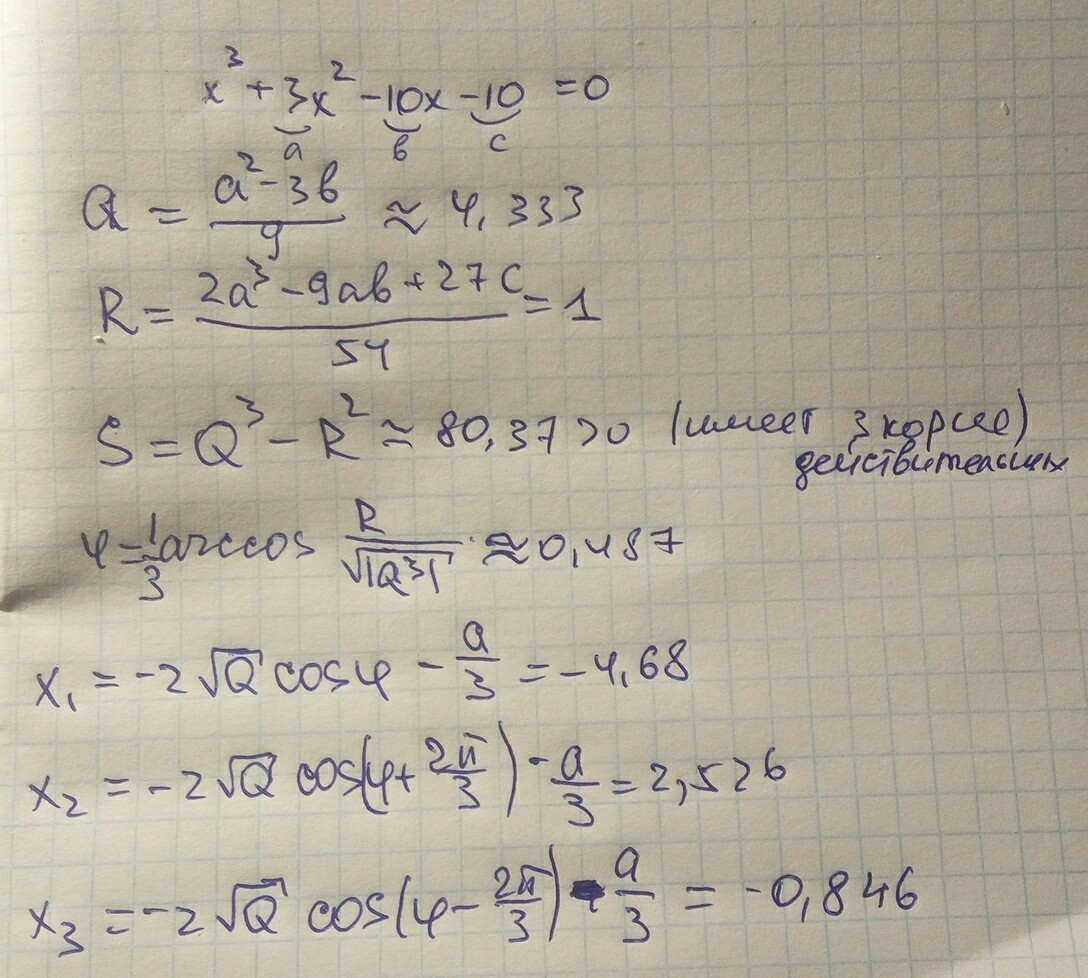 x³ + 3x² - 10x - 10 = 0
a в c
Q = (a² - 3в)/9 ≈ 4,333
R = (2a³ - 9aв + 27c)/54 = 1
S = Q³ - R² ≈ 80,37 > 0 (имеет 3 корня)
действительных
φ = 1/3 arccos R/√|Q³| ≈ 0,487
x₁ = -2√Q cosφ - a/3 = -4,68
x₂ = -2√Q cos(φ + 2π/3) - a/3 = 2,526
x₃ = -2√Q cos(φ - 2π/3) - a/3 = -0,846